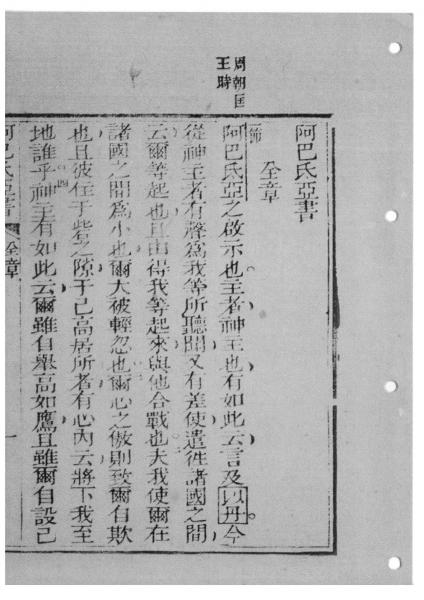 周朝匡
王時
阿巴氏亞書
全章
節
阿巴氏亞之啟示也主者神主也有如此云言及以丹今
從神主者有聲為我等所聽聞又有差使遣徃諸國之間
云爾等起也且由得我等起來與他合戰也夫我使爾在
諸國之間為小也爾大被輕忽也爾心之傲則致爾自欺
也且彼住于之隙于己高居所者有心內云將下我至
地誰乎四神主有如此云爾雖自舉高如鷹且雖爾自設己
阿巴氏亞書 全章 一